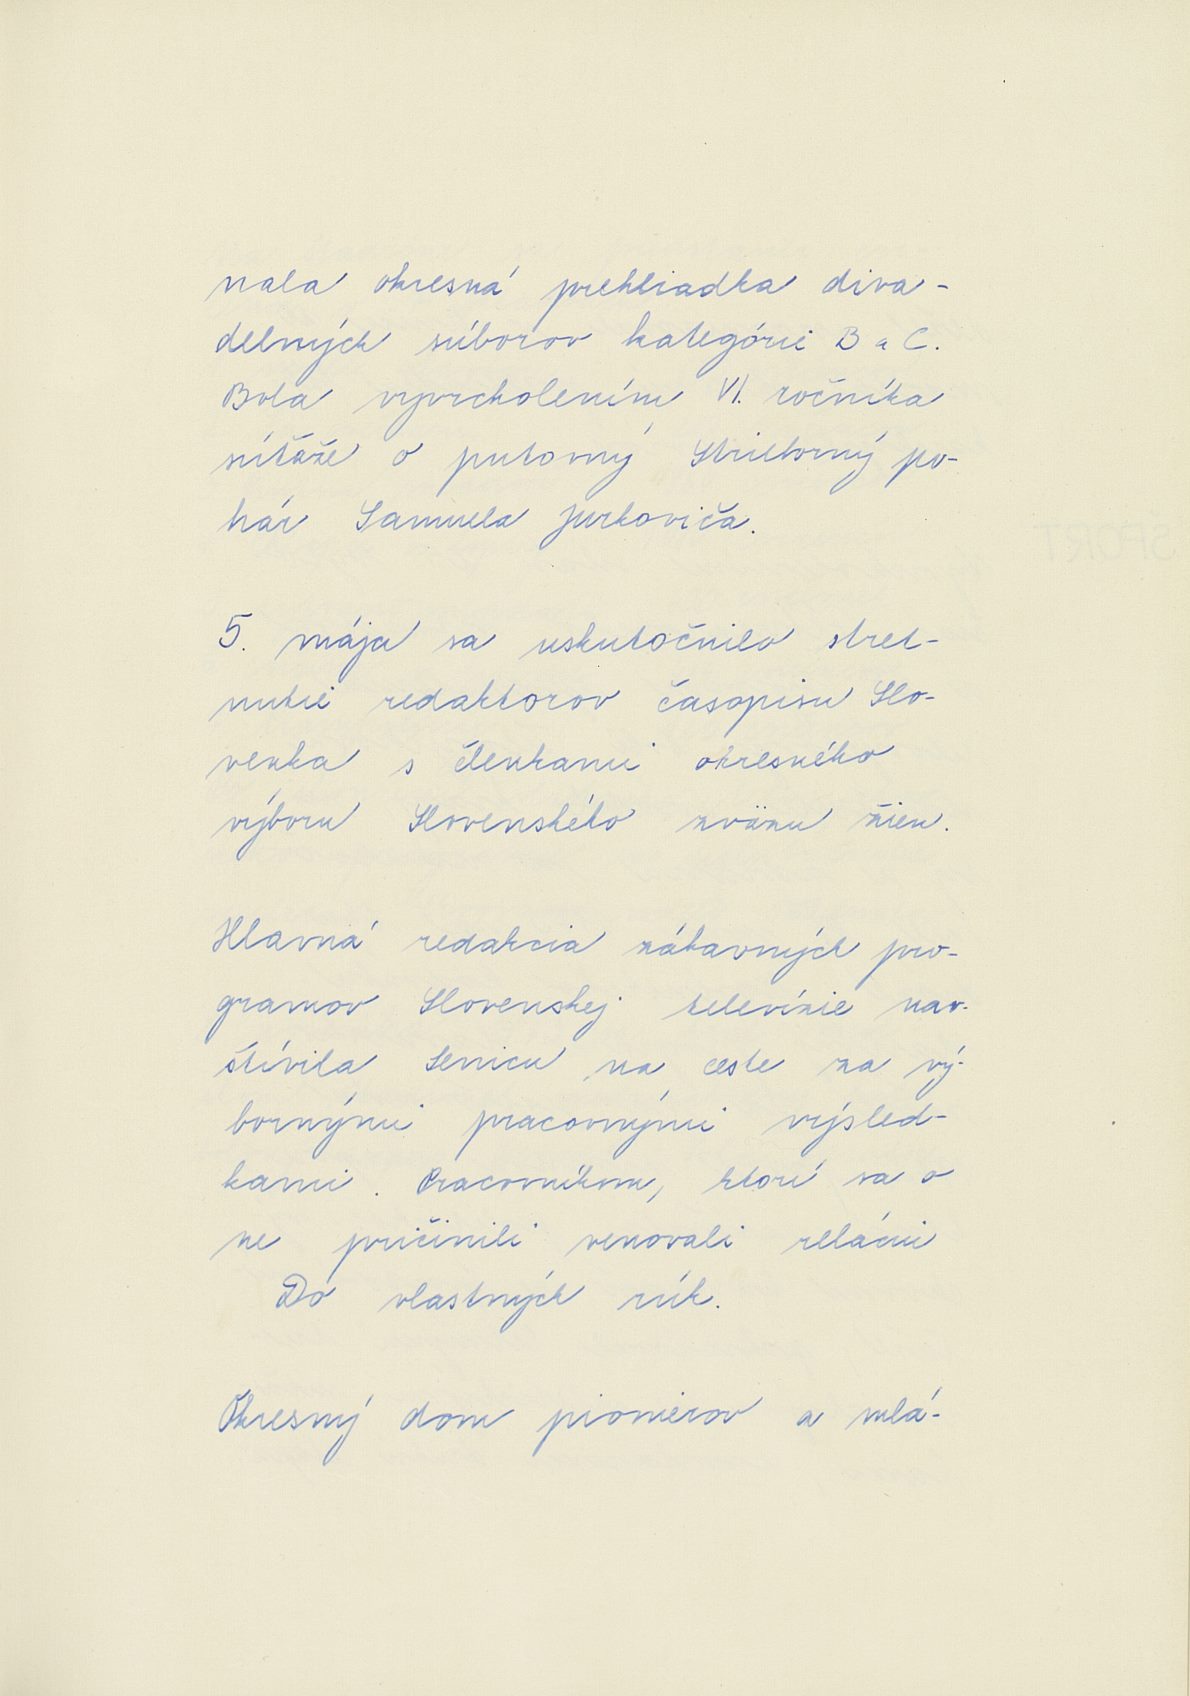 nala okresná prehliadka diva-
delných súborov kategórie B a C.
Bola vyvrcholením VI. ročníka
súťaže o putovný Strieborný po-
hár Samuela Jurkoviča.
5. mája sa uskutočnilo stret-
nutie redaktorov časopisu Slo-
venka s členkami okresného
výboru Slovenského zväzu žien.
Hlavná redakcia zábavných pro-
gramov Slovenskej televízie nav-
štívila Senicu na ceste za vý-
bornými pracovnými výsled-
kami. Pracovníkom, ktorí sa o
ne pričinili venovali reláciu
Do vlastných rúk.
Okresný dom pionierov a mlá-